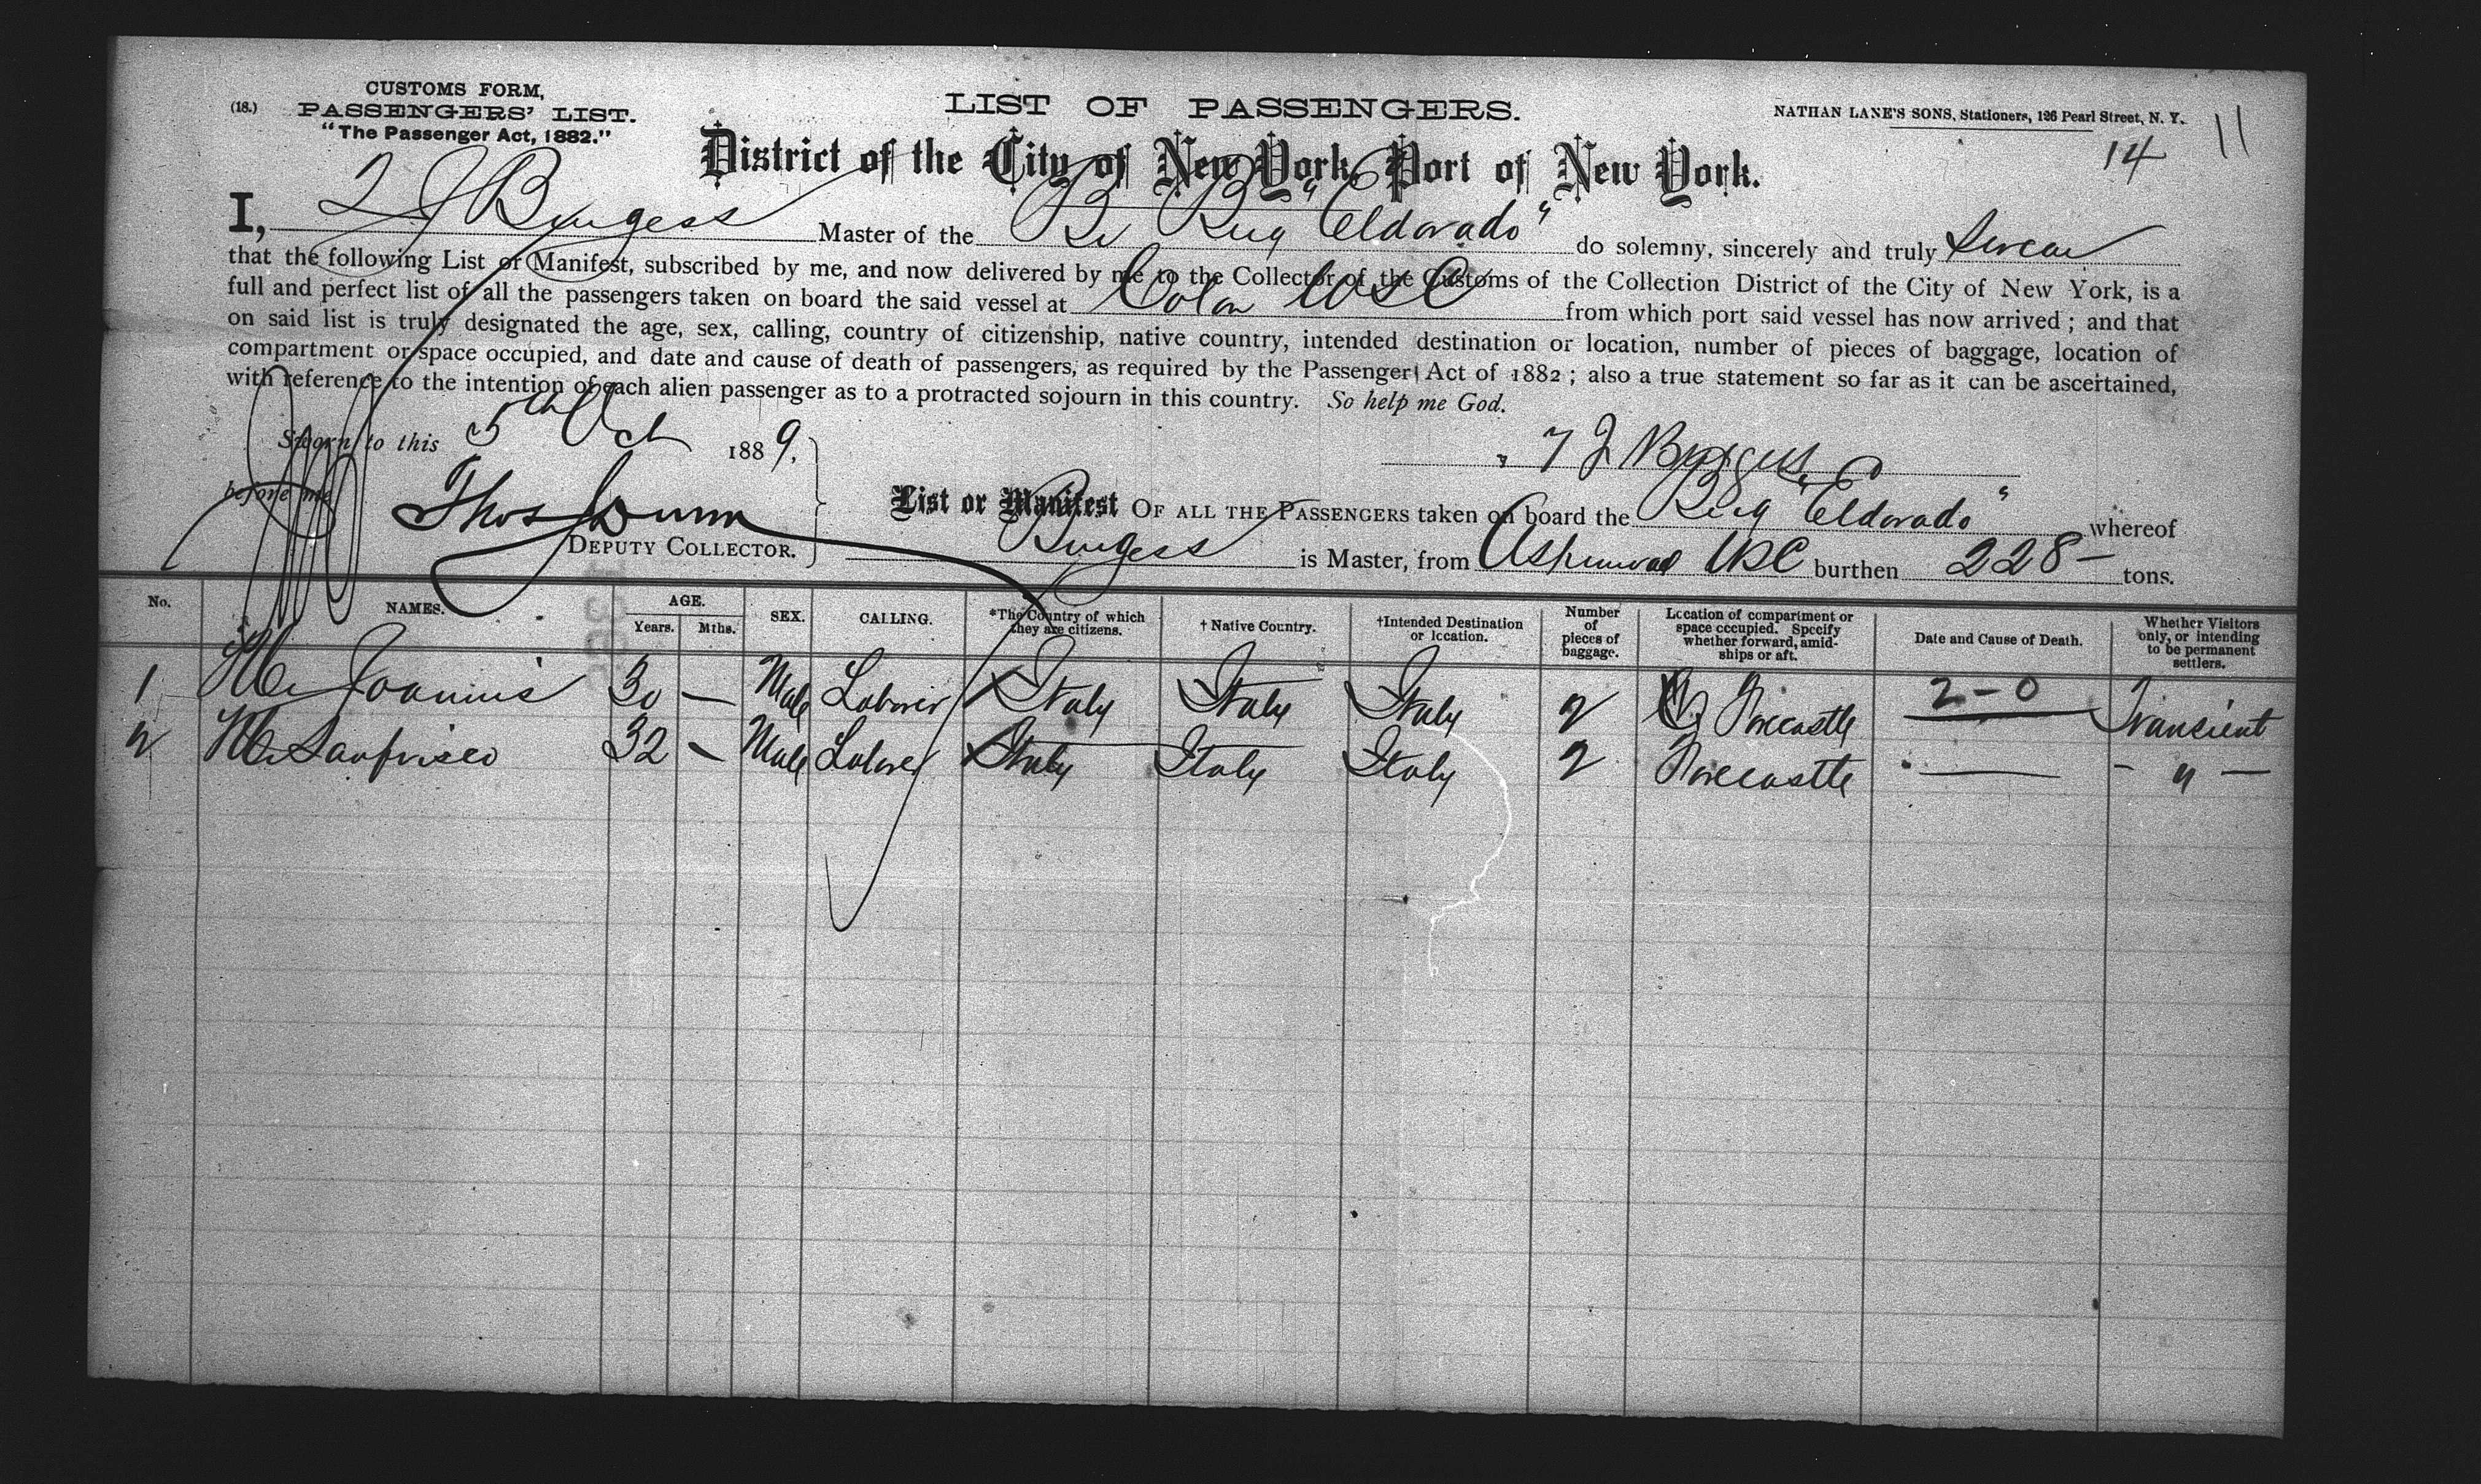 CUSTOMS FORM,
(18.) PASSENGERS' LIST.
"The Passenger Act, 1882."
LIST OF PASSENGERS.
NATHAN LANE'S SONS, Stationers, 126 Pearl Street, N. Y.
14 11
District of the City of New York, Port of New York.
I, J Burgess Master of the Br Brig "Eldorado" do solemny, sincerely and truly swear
that the following List or Manifest, subscribed by me, and now delivered by me to the Collector of the Customs of the Collection District of the City of New York, is a
full and perfect list of all the passengers taken on board the said vessel at Colon USC from which port said vessel has now arrived; and that
on said list is truly designated the age, sex, calling, country of citizenship, native country, intended destination or location, number of pieces of baggage, location of
compartment or space occupied, and date and cause of death of passengers, as required by the Passenger Act of 1882; also a true statement so far as it can be ascertained,
with reference to the intention of each alien passenger as to a protracted sojourn in this country. So help me God.
Sworn to this 5th Oct 1889.
J Burgess
before me Thos Dunn
DEPUTY COLLECTOR.
List or Manifest OF ALL THE PASSENGERS taken on board the Brig "Eldorado" whereof
Burgess is Master, from Aspinwall USC burthen 228 — tons.
No. NAMES. AGE. Years. Mths. SEX. CALLING. *The Country of which they are citizens. † Native Country. †Intended Destination or location. Number of pieces of baggage. Location of compartment or space occupied. Specify whether forward, amidships or aft. Date and Cause of Death. Whether Visitors only, or intending to be permanent settlers.
1 30 — Male Laborer Italy Italy Italy 2 Forecastle 2-0 Transient
2 32 — Male Laborer Italy Italy Italy 2 Forecastle — - " —